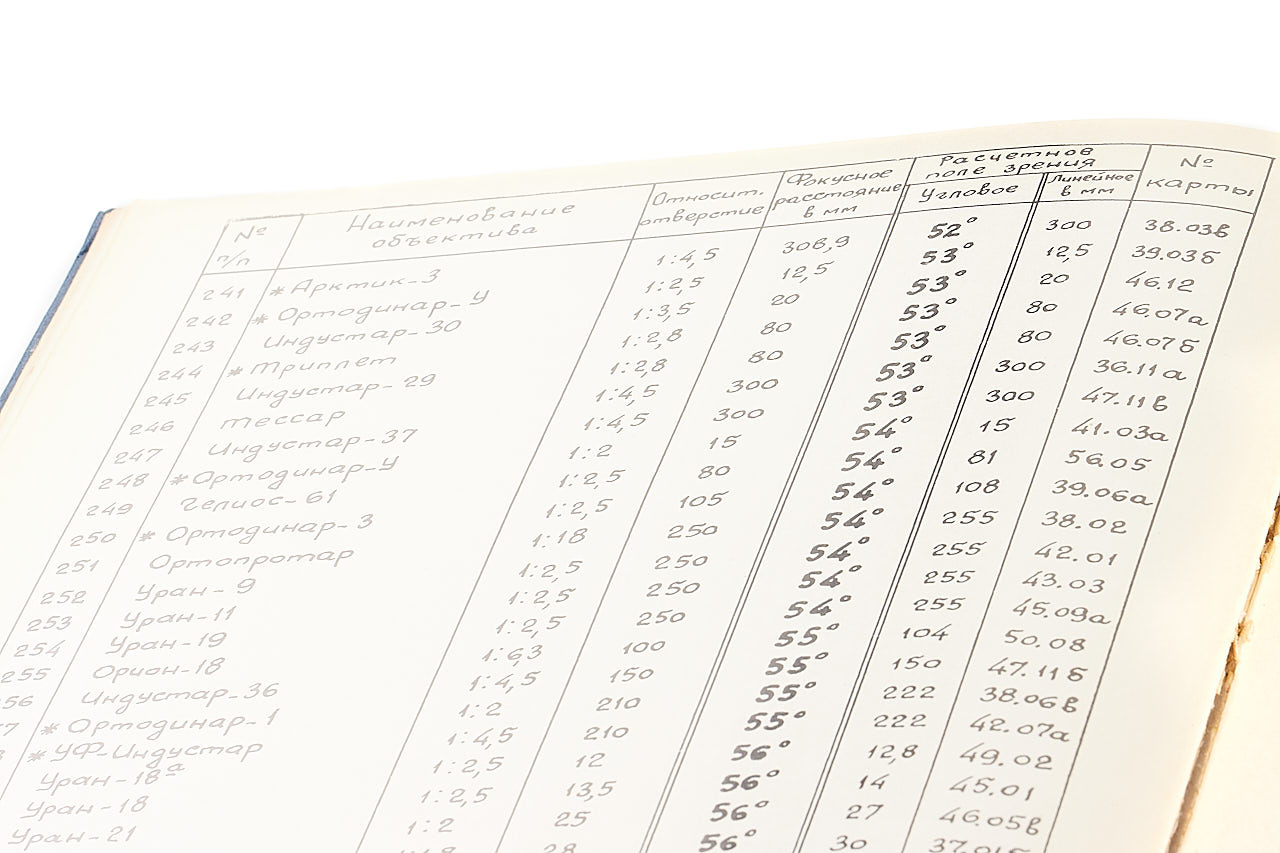 № п/п Наименование объектива Относит. отверстие Фокусное расстояние в мм Расчетное поле зрения Угловое Линейное в мм № карты
241 * Арктик-3 1:4,5 306,9 52° 300 38.03в
242 * Ортодинар-У 1:2,5 12,5 53° 12,5 39.03б
243 Индустар-30 1:3,5 20 53° 20 46.12
244 * Триплет 1:2,8 80 53° 80 46.07а
245 Индустар-29 1:2,8 80 53° 80 46.07б
246 Тессар 1:4,5 300 53° 300 36.11а
247 Индустар-37 1:4,5 300 53° 300 47.11в
248 * Ортодинар-У 1:2 15 54° 15 41.03а
249 Гелиос-61 1:2,5 80 54° 81 56.05
250 * Ортодинар-3 1:2,5 105 54° 108 39.06а
251 Ортопротар 1:18 250 54° 255 38.02
252 Уран-9 1:2,5 250 54° 255 42.01
253 Уран-11 1:2,5 250 54° 255 43.03
254 Уран-19 1:2,5 250 54° 255 45.09а
255 Орион-18 1:6,3 100 55° 104 50.08
56 Индустар-36 1:4,5 150 55° 150 47.11б
7 * Ортодинар-1 1:2 210 55° 222 38.06в
* УФ-Индустар 1:4,5 210 55° 222 42.07а
Уран-18а 1:2,5 12 56° 12,8 49.02
Уран-18 1:2,5 13,5 56° 14 45.01
Уран-21 1:2 25 56° 27 46.05в
28 56° 30